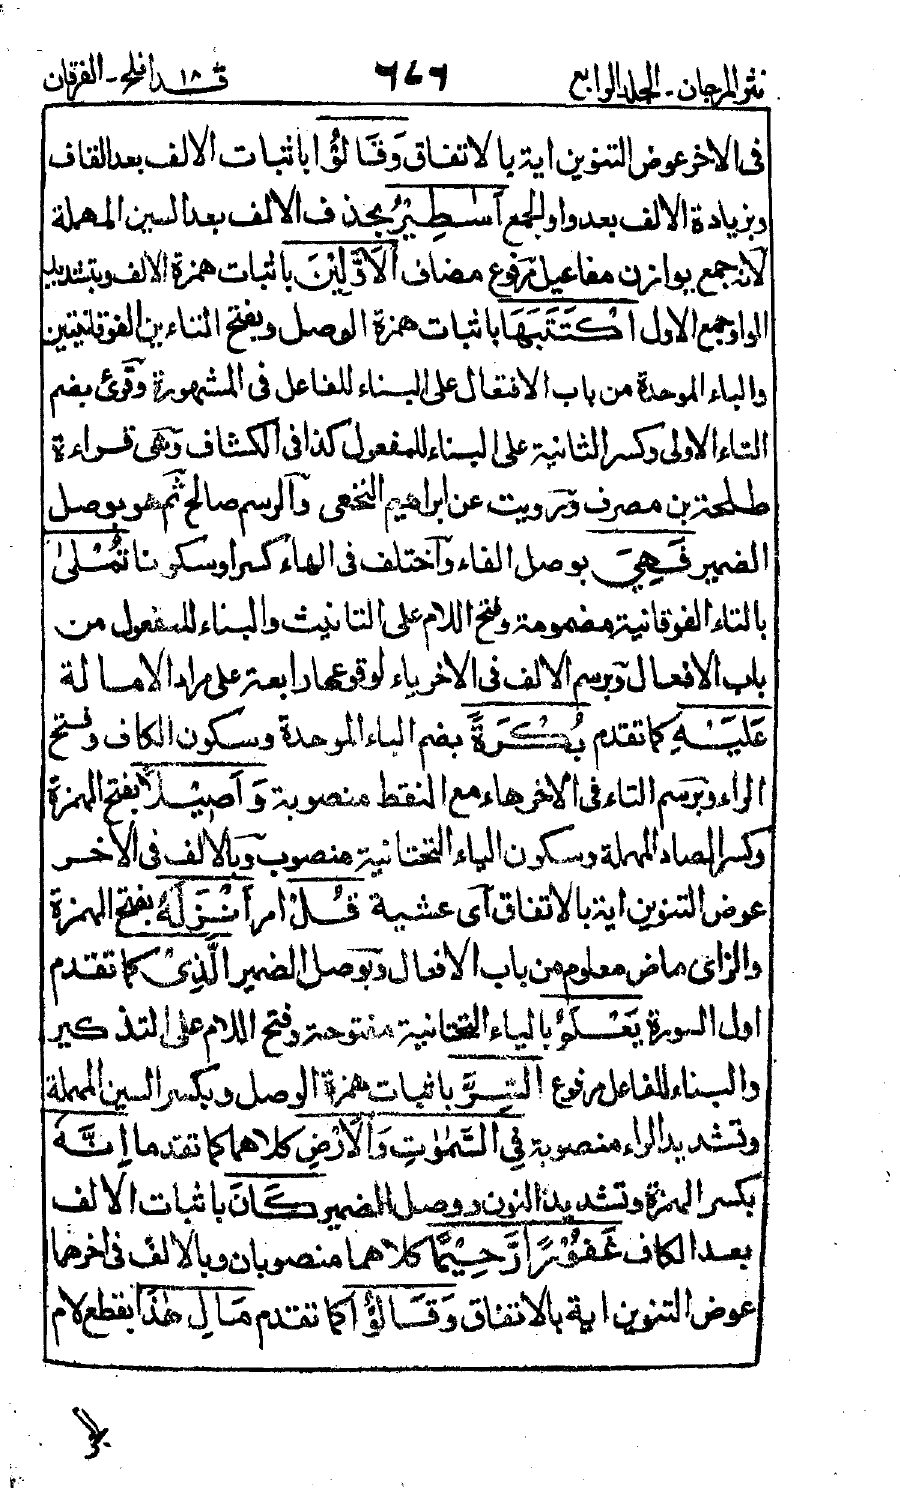 نثر المرجان - الجلد الرابع ٦٤٦ قد افلح ١٨ - الفرقان
فى الاخر عوض التنوين اية بالاتفاق وَقَالُوْٓا باثبات الالف بعد القاف
وبزيادة الالف بعد واو الجمع اَسٰطِيْرُ بحذف الالف بعد السين المهملة
لانه جمع يوازن مفاعيل مرفوع مضاف الْاَوَّلِيْنَ باثبات همزة الالف وبتشديد
الواو جمع الاول اكْتَتَبَهَا باثبات همزة الوصل وبفتح التاءين الفوقانيتين
والباء الموحدة من باب الافتعال على البناء للفاعل فى المشهورة وقرئ بضم
التاء الاولى وكسر الثانية على البناء للمفعول كذا فى الكشاف وهى قراءة
طلحة بن مصرف ورويت عن ابراهيم النخعى والرسم صالح ثم هو بوصل
الضمير فَهِىَ بوصل الفاء واختلف فى الهاء كسرا وسكونا تُمْلٰى
بالتاء الفوقانية مضمومة وفتح اللام على التانيث والبناء للمفعول من
باب الافعال وبرسم الالف فى الاخر ياء لوقوعها رابعة على مراد الامالة
عَلَيْهِ كما تقدم بُكْرَةً بضم الباء الموحدة وسكون الكاف وفتح
الراء وبرسم التاء فى الاخر هاء مع النقط منصوبة وَاَصِيْلًا بفتح الهمزة
وكسر الصاد المهملة وسكون الياء التحتانية منصوب وبالالف فى الاخر
عوض التنوين اية بالاتفاق اى عشية قُلْ امر اَنْزَلَهُ بفتح الهمزة
والزاى ماض معلوم من باب الافعال وبوصل الضمير الَّذِىْ كما تقدم
اول السورة يَعْلَمُ بالياء التحتانية مفتوحة وفتح اللام على التذكير
والبناء للفاعل مرفوع السِّرَّ باثبات همزة الوصل وبكسر السين المهملة
وتشديد الراء منصوبة فِى السَّمٰوٰتِ وَالْاَرْضِ كلاهما كما تقدما اِنَّهُ
بكسر الهمزة وتشديد النون ووصل الضمير كَانَ باثبات الالف
بعد الكاف غَفُوْرًا رَّحِيْمًا كلاهما منصوبان وبالالف فى اخرهما
عوض التنوين اية بالاتفاق وَقَالُوْا كما تقدم مَالِ هٰذَا بقطع لام
الجر